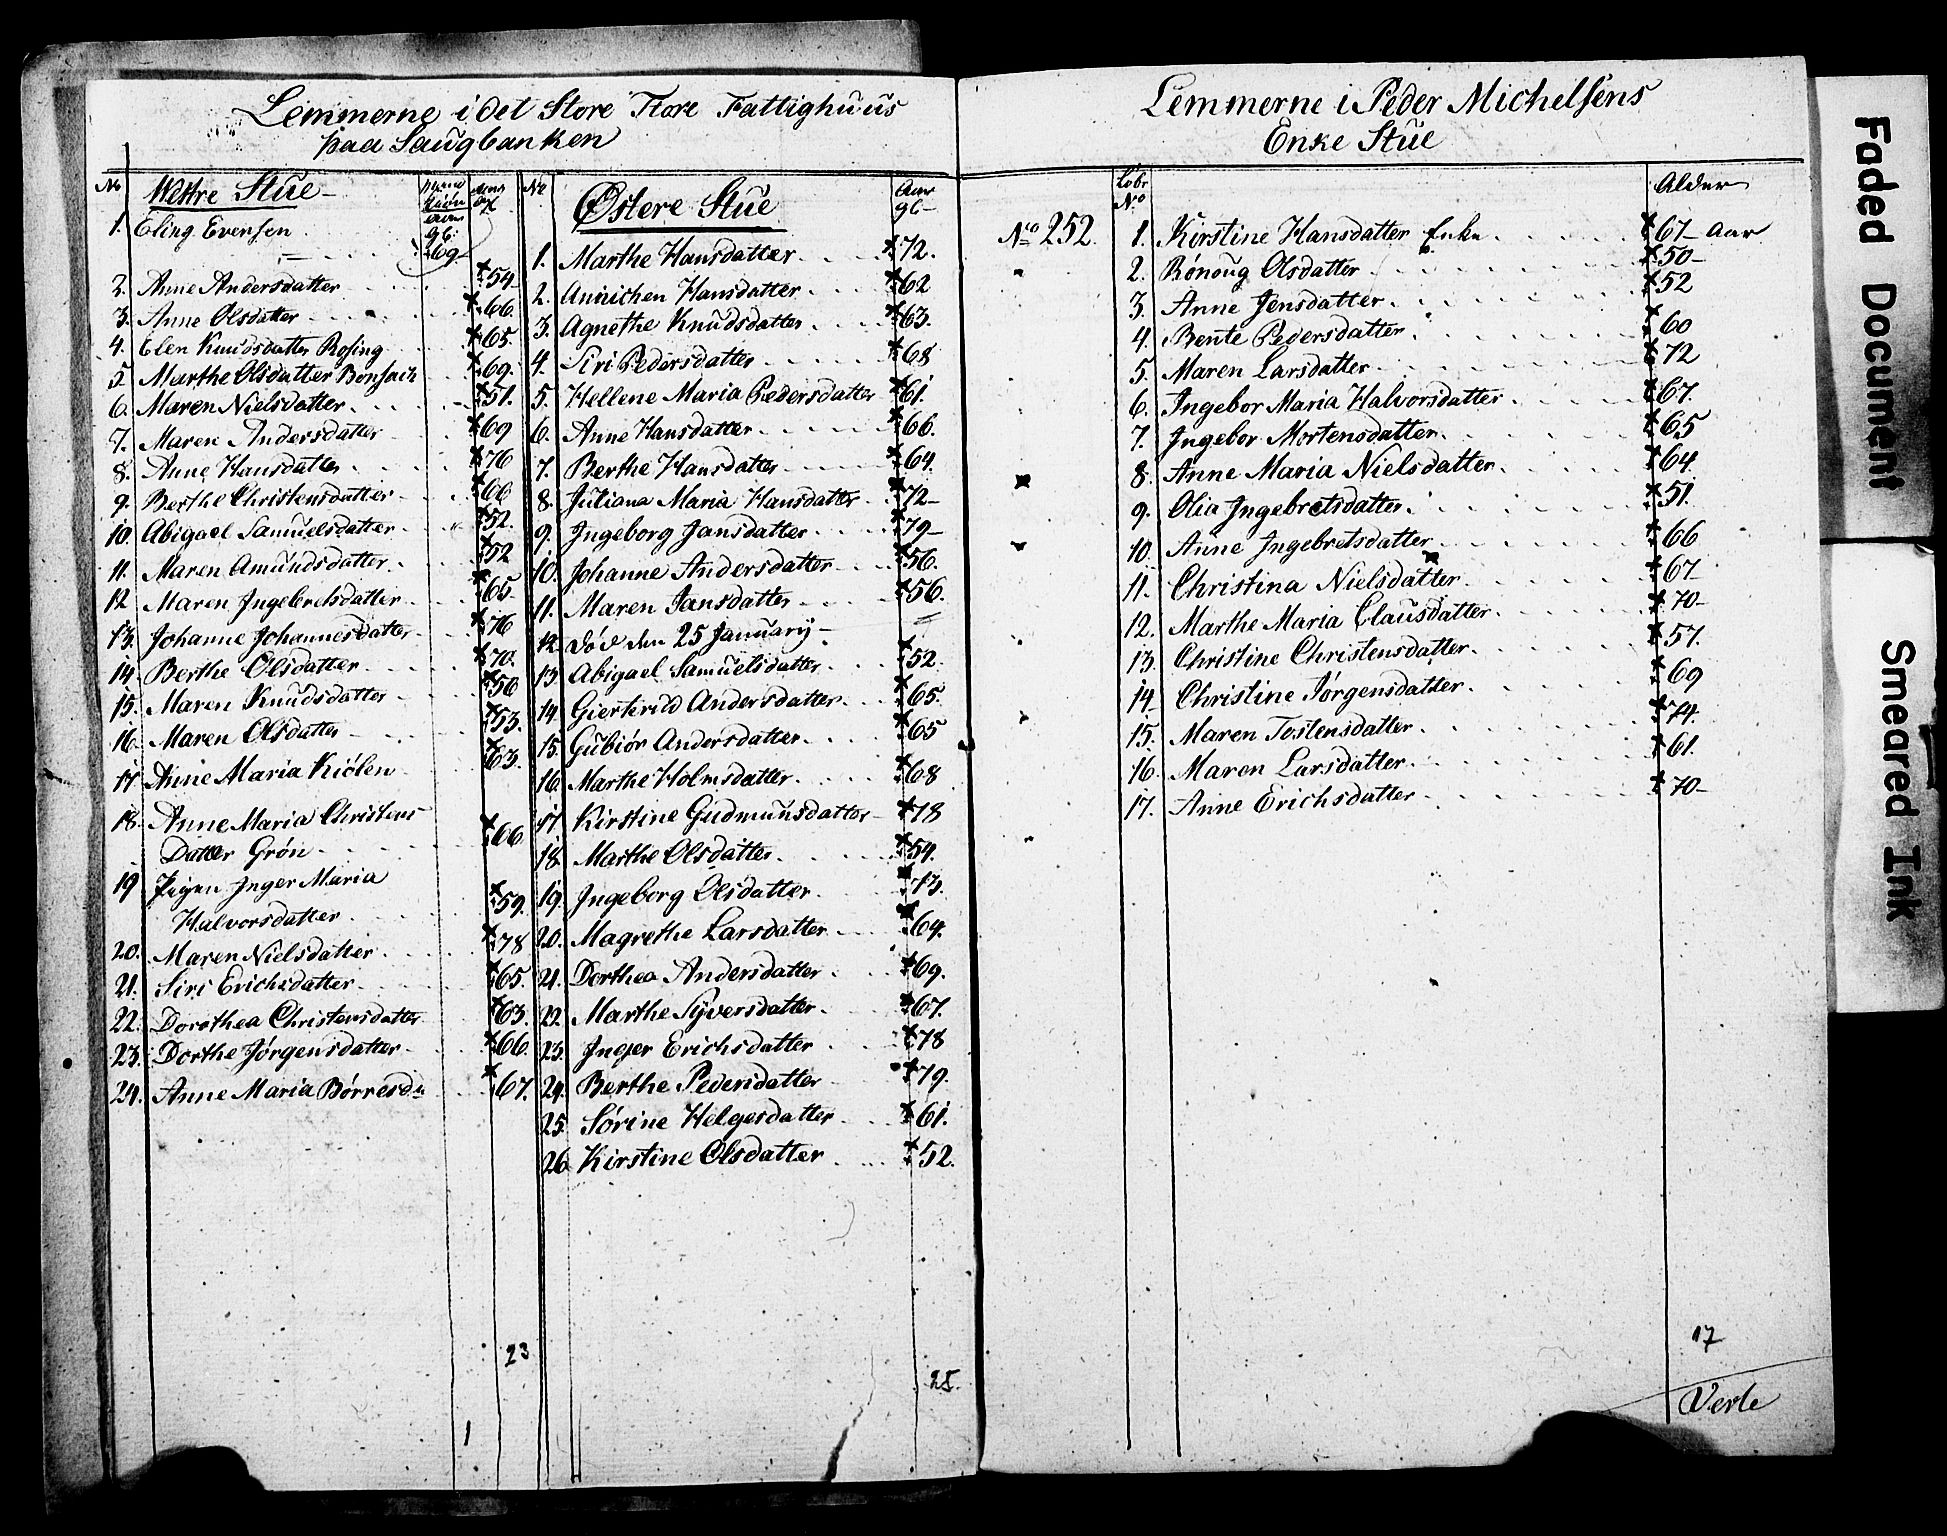 Lemmerne i det Store Fattighuus
paa Saugbanken
No
Westre Stue
1. Eling Evensen 69
2. Anne Andersdatter 54
3. Anne Olsdatter 66
4. Elen Knudsdatter Rosing 65
5. Marthe Olsdatter 69
6. Maren Nielsdatter 51.
7. Maren Andersdatter 69
8. Anne Hansdatter 76
9. Berthe Christensdatter 66
10. Abigael Samuelsdatter 52.
11. Maren Amundsdatter 52
12 Maren Ingebretsdatter 65
13. Johanne Johannesdatter 76
14. Berthe Olsdatter 70.
15. Maren Knudsdatter 56
16. Maren Olsdatter 53.
17 Anne Maria Kiólen 63.
18. Anne Maria Christens
Datter Grón 66
19 Inger Maria
Halvorsdatter 59.
20. Maren Nielsdatter 78
21. Siri Erichsdatter 65.
22. Dorothea Christensdatter 63.
23. Dorthe Jórgensdatter 66.
24. Anne Maria Bórresd 67.
23
1
No
Østere Stue
Aar
gl
1. Marthe Hansdatter 72.
2. Annichen Hansdatter 62
3. Agnethe Knudsdatter 63.
4. Siri Pedersdatter 68
5. Hellene Maria Pedersdatter 61.
6. Anne Hansdatter 66.
7. Berthe Hansdatter 64.
8. Juliana Maria Hansdatter 72
9. Ingeborg Jansdatter 79
10. Johanne Andersdatter 56.
11. Maren Jansdatter 56.
12. Dód den 25 January
13 Abigael Samuelsdatter 52.
14. Giertrud Andersdatter 65.
15. Gubiór Andersdatter 65
16. Marthe Holmsdatter 68
17 Kirstine Gudmunsdatter 78
18. Marthe Olsdatter 54.
19. Ingeborg Olsdatter 73.
20. Magrethe Larsdatter 64.
21. Dorthea Andersdatter 69.
22. Marthe Syversdatter 67.
23. Inger Erichsdatter 78
24. Berthe Pedersdatter 79.
25. Sórine Helgesdatter 61.
26. Kirstine Olsdatter 52.
25.
Lemmerne i Peder Michelsens
Enke Stue
Lobe
No
Alder
No 252. 1. Kirstine Hansdatter Enke 67 Aar
2. Rónoug Olsdatter 50
3. Anne Jensdatter 52
4. Bente Pedersdatter 60
5. Maren Larsdatter 72
6. Ingebor Maria Halvorsdatter 67.
7. Ingebor Mortensdatter 65
8. Anne Maria Nielsdatter 64
9. Olia Ingebretsdatter 51.
10. Anne Ingebretsdatter 66
11. Christina Nielsdatter 67
12. Marthe Maria Clausdatter 70
13. Christine Christensdatter 57.
14 Christine Jórgensdatter 69
15. Maren Tostensdatter 74.
16. Maren Larsdatter 61.
17. Anne Erichsdatter 70
17
Verte
Faded Document
Smeared Ink